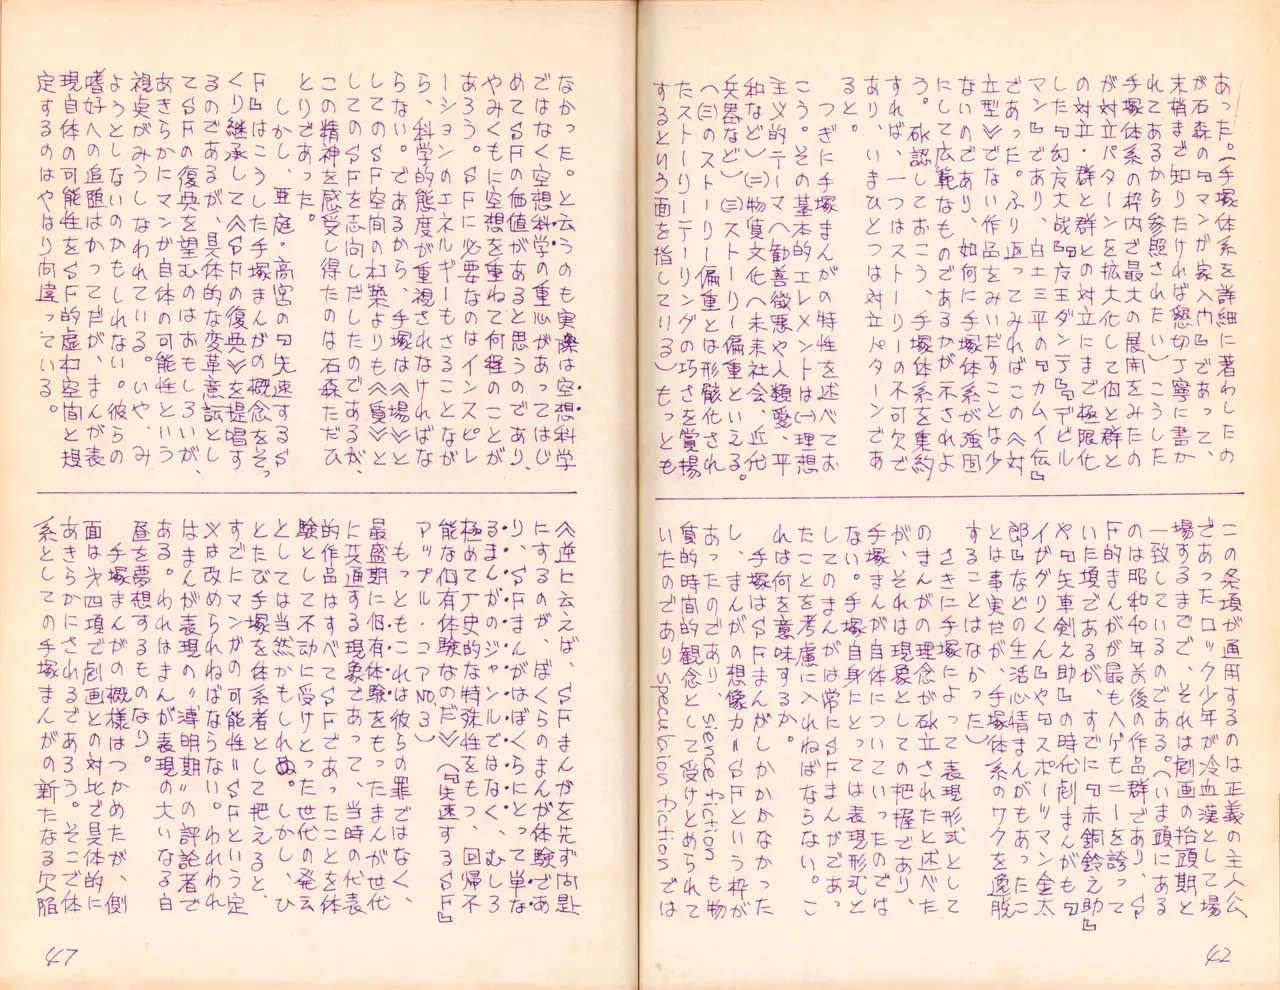 あった。（手塚体系を詳細に著わしたの
が石森の『マンガ家入門』であって、
末梢まで知りたければ懇切丁寧に書か
れてあるから参照されたい）こうした
手塚体系の枠内で最大の展開をみたの
が対立パターンを拡大化して個と群と
の対立・群と群との対立にまで極限化
した『幻友大戦』『友王ダンテ』『デビル
マン』であり、白土三平の『カムイ伝』
であった。ふり返ってみればこの〈対
立型〉でない作品をみいだすことは少
ないのであり、如何に手塚体系が強固
にして広範なものであるかが示されよ
う。確認しておこう、手塚体系を集約
すれば、一つはストーリーの不可欠で
あり、いまひとつは対立パターンであ
ると。
つぎに手塚まんがの特性を述べてお
こう。その基本的エレメントは㈠理想
主義的テーマ〈勧善徴悪や人類愛、平
和など〉㈡物質文化〈未来社会、近代
兵器など〉㈢ストーリー偏重といえる。
（㈢のストーリー偏重とは形骸化され
たストーリーテーリングの巧さを賞揚
するという面を指している）もっとも
この条項が通用するのは正義の主人公
であったロック少年が冷血漢として場
場するまでで、それは劇画の抬頭期と
一致しているのである。（いま頭にある
のは昭和和年前後の作品群であり、S
F的まんがが最もヘゲモニーを誇って
いた頃であるが、すでに『赤銅鈴之助』
や『矢車剣之助』の時代劇まんがも『
イガグリくん』や『スポーツマン金太
郎』などの生活心情まんがもあったこ
とは事実だが、手塚体系のワクを逸脱
することはなかった）
さきに手塚によって表現形式として
のまんがの理念が確立されたと述べた
が、それは現象としての把握であり、
手塚まんが自体についていったのでは
ない。手塚自身にとっては表現形式と
してのまんがは常にSFまんがであっ
たことを考慮に入れねばならない。こ
れは何を意味するか。
手塚はSFまんがしかかかなかった
し、まんがの想像力＝SFという枠が
あったのであり、sience fiction も物
質的時間的観念として受けとめられて
いたのであり speculation fiction では
42
なかった。と云うのも実際は空想科学
ではなく空想科学の重心があってはじ
めてSFの価値があると思うのであり、
やみくもに空想を重ねて何程のことが
あろう。SFに必要なのはインスピレ
ーションのエネルギーもさることなが
ら、科学的態度が重視されなければな
らない。であるから、手塚は《場》と
してのSF空間の構築よりも《質》と
してのSFを志向しだしたのであるが、
この精神を感受し得たのは石森ただひ
とりであった。
しかし、亜庭・高宮の『失速するS
F』はこうした手塚まんがの概念をそっ
くり継承して《SFの復興》を提唱す
るのであるが、具体的な変革意識とし
てSFの復興を望むのはおもしろいが、
あきらかにマンガ自体の可能性という
視点がみうしなわれている。いや、み
ようとしないのかもしれない。彼らの
嗜好への追随はかってだが、まんが表
現自体の可能性をSF的虚構空間と規
定するのはやはり間違っている。
〈逆に云えば、SFまんがを先ず問題
にするのが、ぼくらのまんが体験であ
り、SFまんがはぼくらにとって単な
るまんがのジャンルではなく、むしろ
極めて歴史的な特殊性をもつ、回帰不
能な個有体験なのだ》（『失速するSF』
アップル・コアNO.3）
もっともこれは彼らの罪ではなく、
最盛期に個有体験をもったまんが世代
に共通する現象であって、当時の代表
的作品はすべてSFであったことを体
験として不動に受けとった世代の発云
としては当然かもしれぬ。しかし、ひ
とたび手塚を体系者として把えると、
すでにマンガの可能性＝SFという定
義は改められねばならない。われわれ
はまんが表現の〝薄明期〟の評論者で
ある。われはまんが表現の大いなる白
昼を夢想するものなり。
手塚まんがの概様はつかめたが、側
面は第四項で劇画との対比で具体的に
あきらかにされるであろう。そこで体
系としての手塚まんがの新たなる欠陥
47